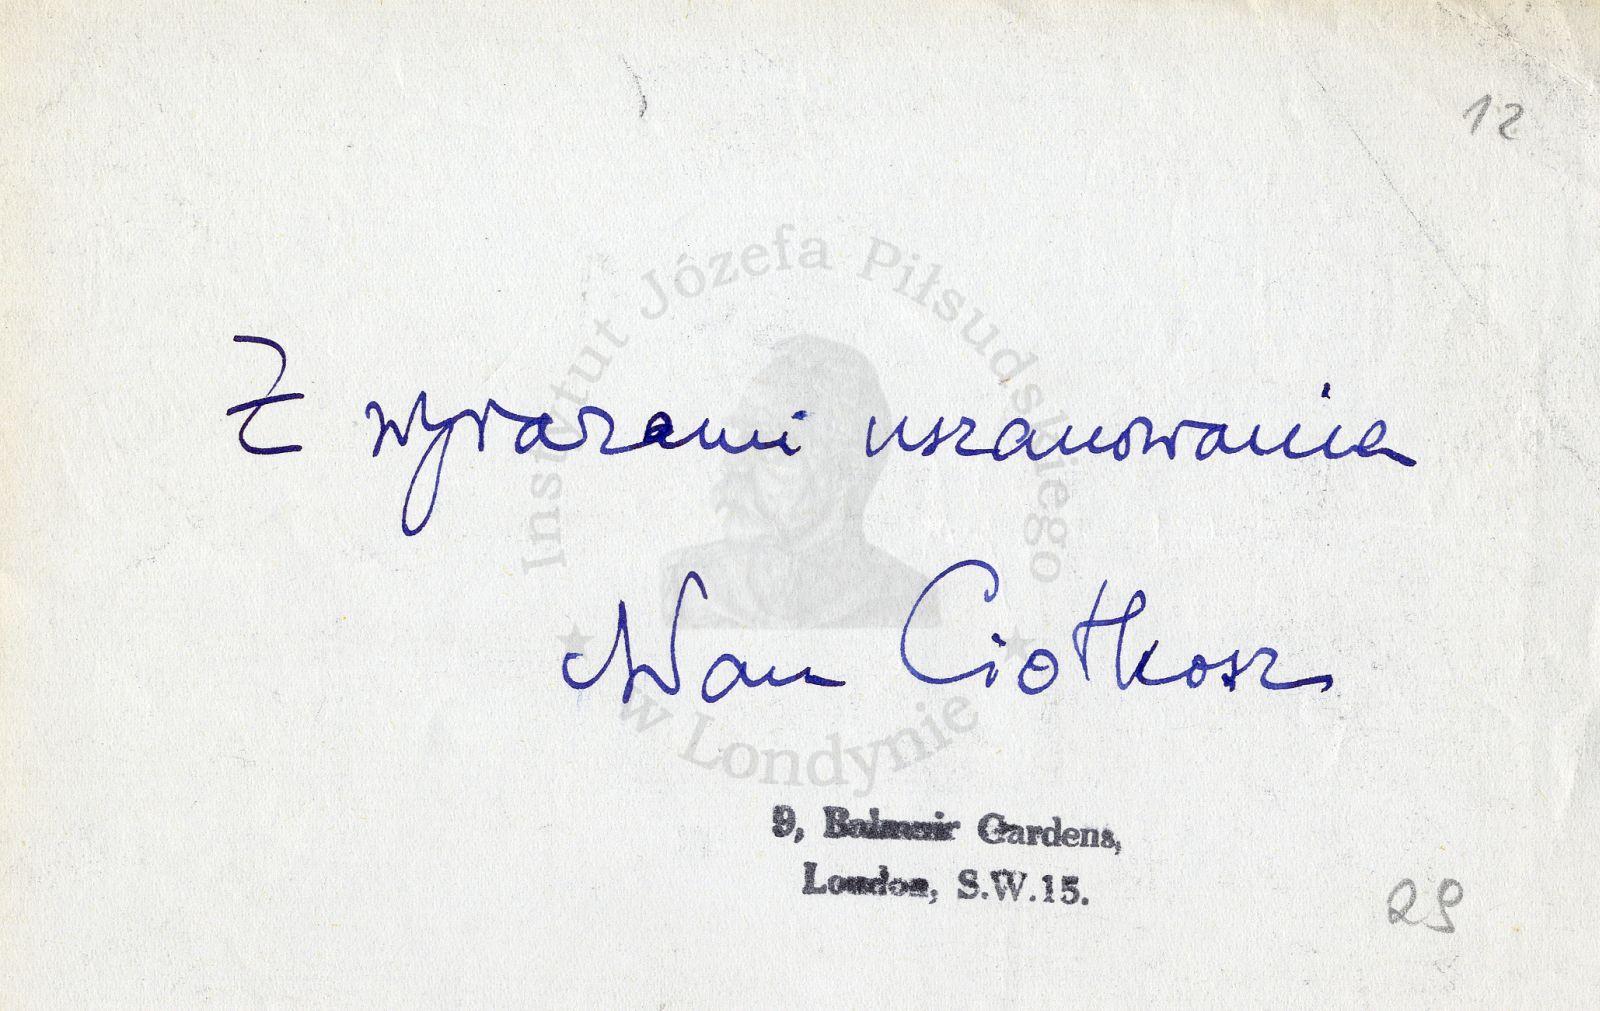 12
Instytut Józefa Piłsudskiego
Z wyrazami uszanowania
Adam Ciołkosz
w Londynie
9, Balmuir Gardens,
London, S.W.15.
29